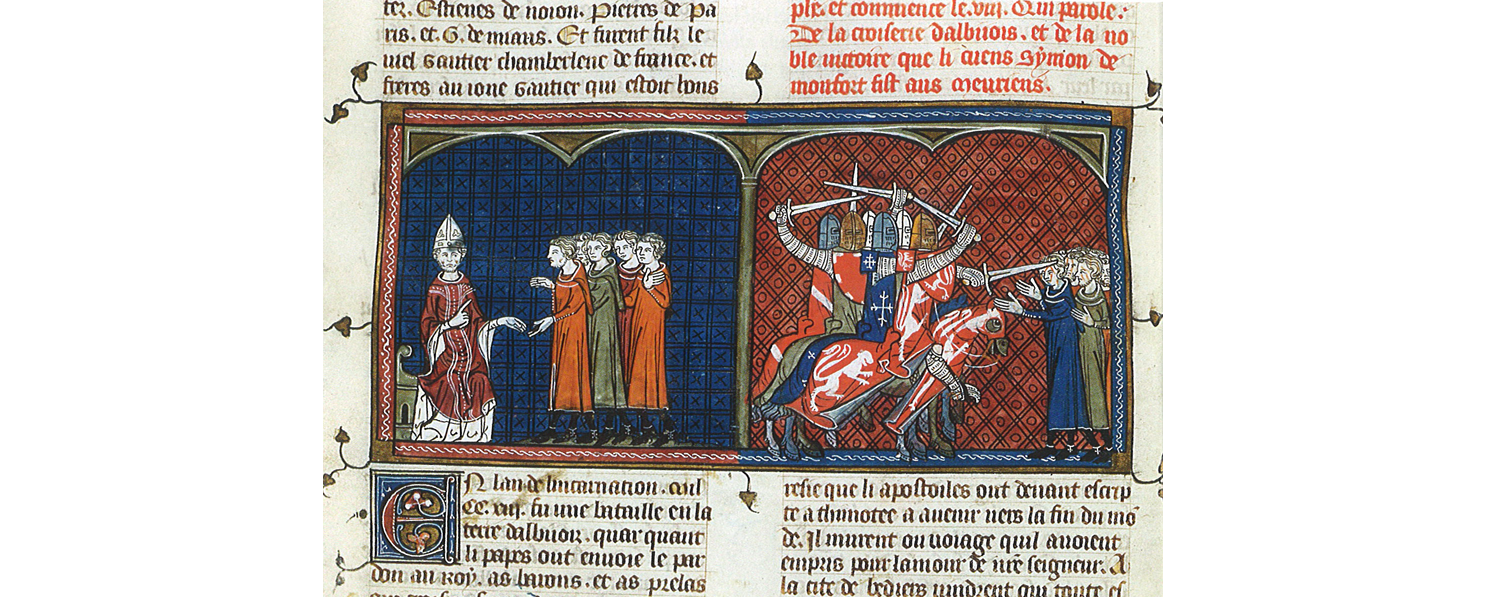 ter. Estienes de noion. Pierres de Pa
ris. et. G. de miaus. Et furent filz le
uiel Gautier chamberlenc de france. et
freres au ione Gautier qui estoit bons
ple. et commence le. viij. Qui parole:
De la croiserie dalbiiois. et de la no
ble uictoire que li cuens Symon de
monfort fist aus Meuriens.
EN lan de lincarnation. mil
CC. xiij. fu une bataille en la
terre dalbiiois. quar quant
li papes out enuoie le par
don au roy. as barons. et as prelas
resie que li apostoiles out deuant escrip
te a thimotee a auenir uers la fin du mo
de. Il murent ou uoiage quil auoient
empris pour lamour de nre seigneur. A
la cite de bediers uindrent qui toute es